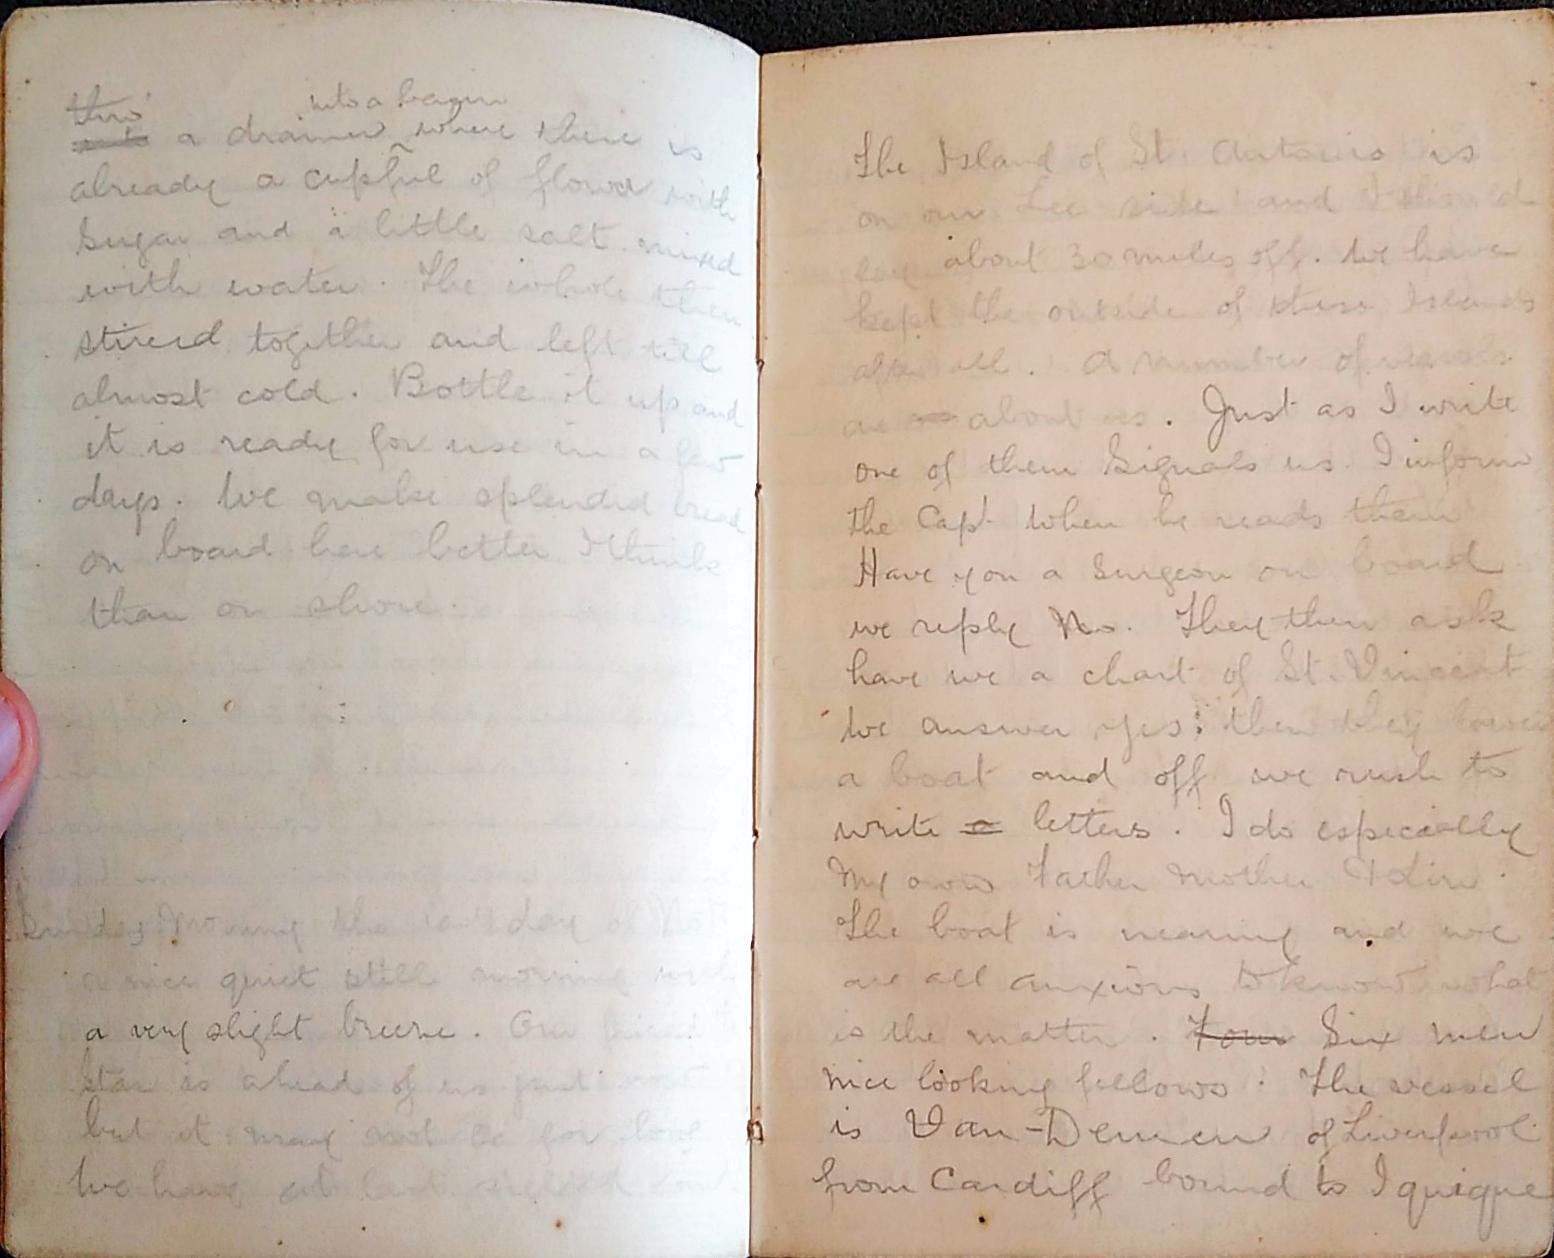 thro' into a bason
a drainer where there is
already a cupful of flower with
Sugar and a little salt mixed
with water. The whole then
stired together and left till
almost cold. Bottle it up and
it is ready for use in a few
days. We make splendid bread
on board here better I think
than on shore.
Sunday Morning the day of Nov
a nice quiet still morning with
a very slight breeze. Our friend the
star is ahead of us just now
but it may not be for long
We have at last
The Island of St. Antonio is
on our Lee side and I should
say about 30 miles off. We have
kept the outside of these Islands
after all. A number of vessels
are about us. Just as I write
one of them Signals us. I inform
the Capt. When he reads them
Have you a Surgeon on board
we reply No. They then ask
have we a chart of St. Vincent
We answer yes: then they lower
a boat and off we rush to
write a letters. I do especially
My own Father Mother
The boat is nearing and we
are all anxious to know what
is the matter. Four Six men
nice looking fellows. The vessel
is Van-Demen of Liverpool
from Cardiff bound to Iquique